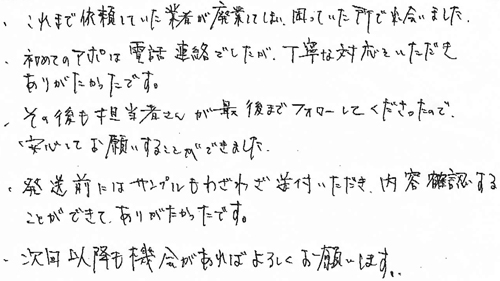 ・これまで依頼していた業者が廃業してしまい、困っていた所で出会いました。
・初めてのアポは電話連絡でしたが、丁寧な対応をいただき
ありがたかったです。
・その後も担当者さんが最後までフォローしてくださったので、
安心してお願いすることができました。
・発送前にはサンプルもわざわざ送付いただき、内容確認する
ことができて、ありがたかったです。
・次回以降も機会があればよろしくお願いします。